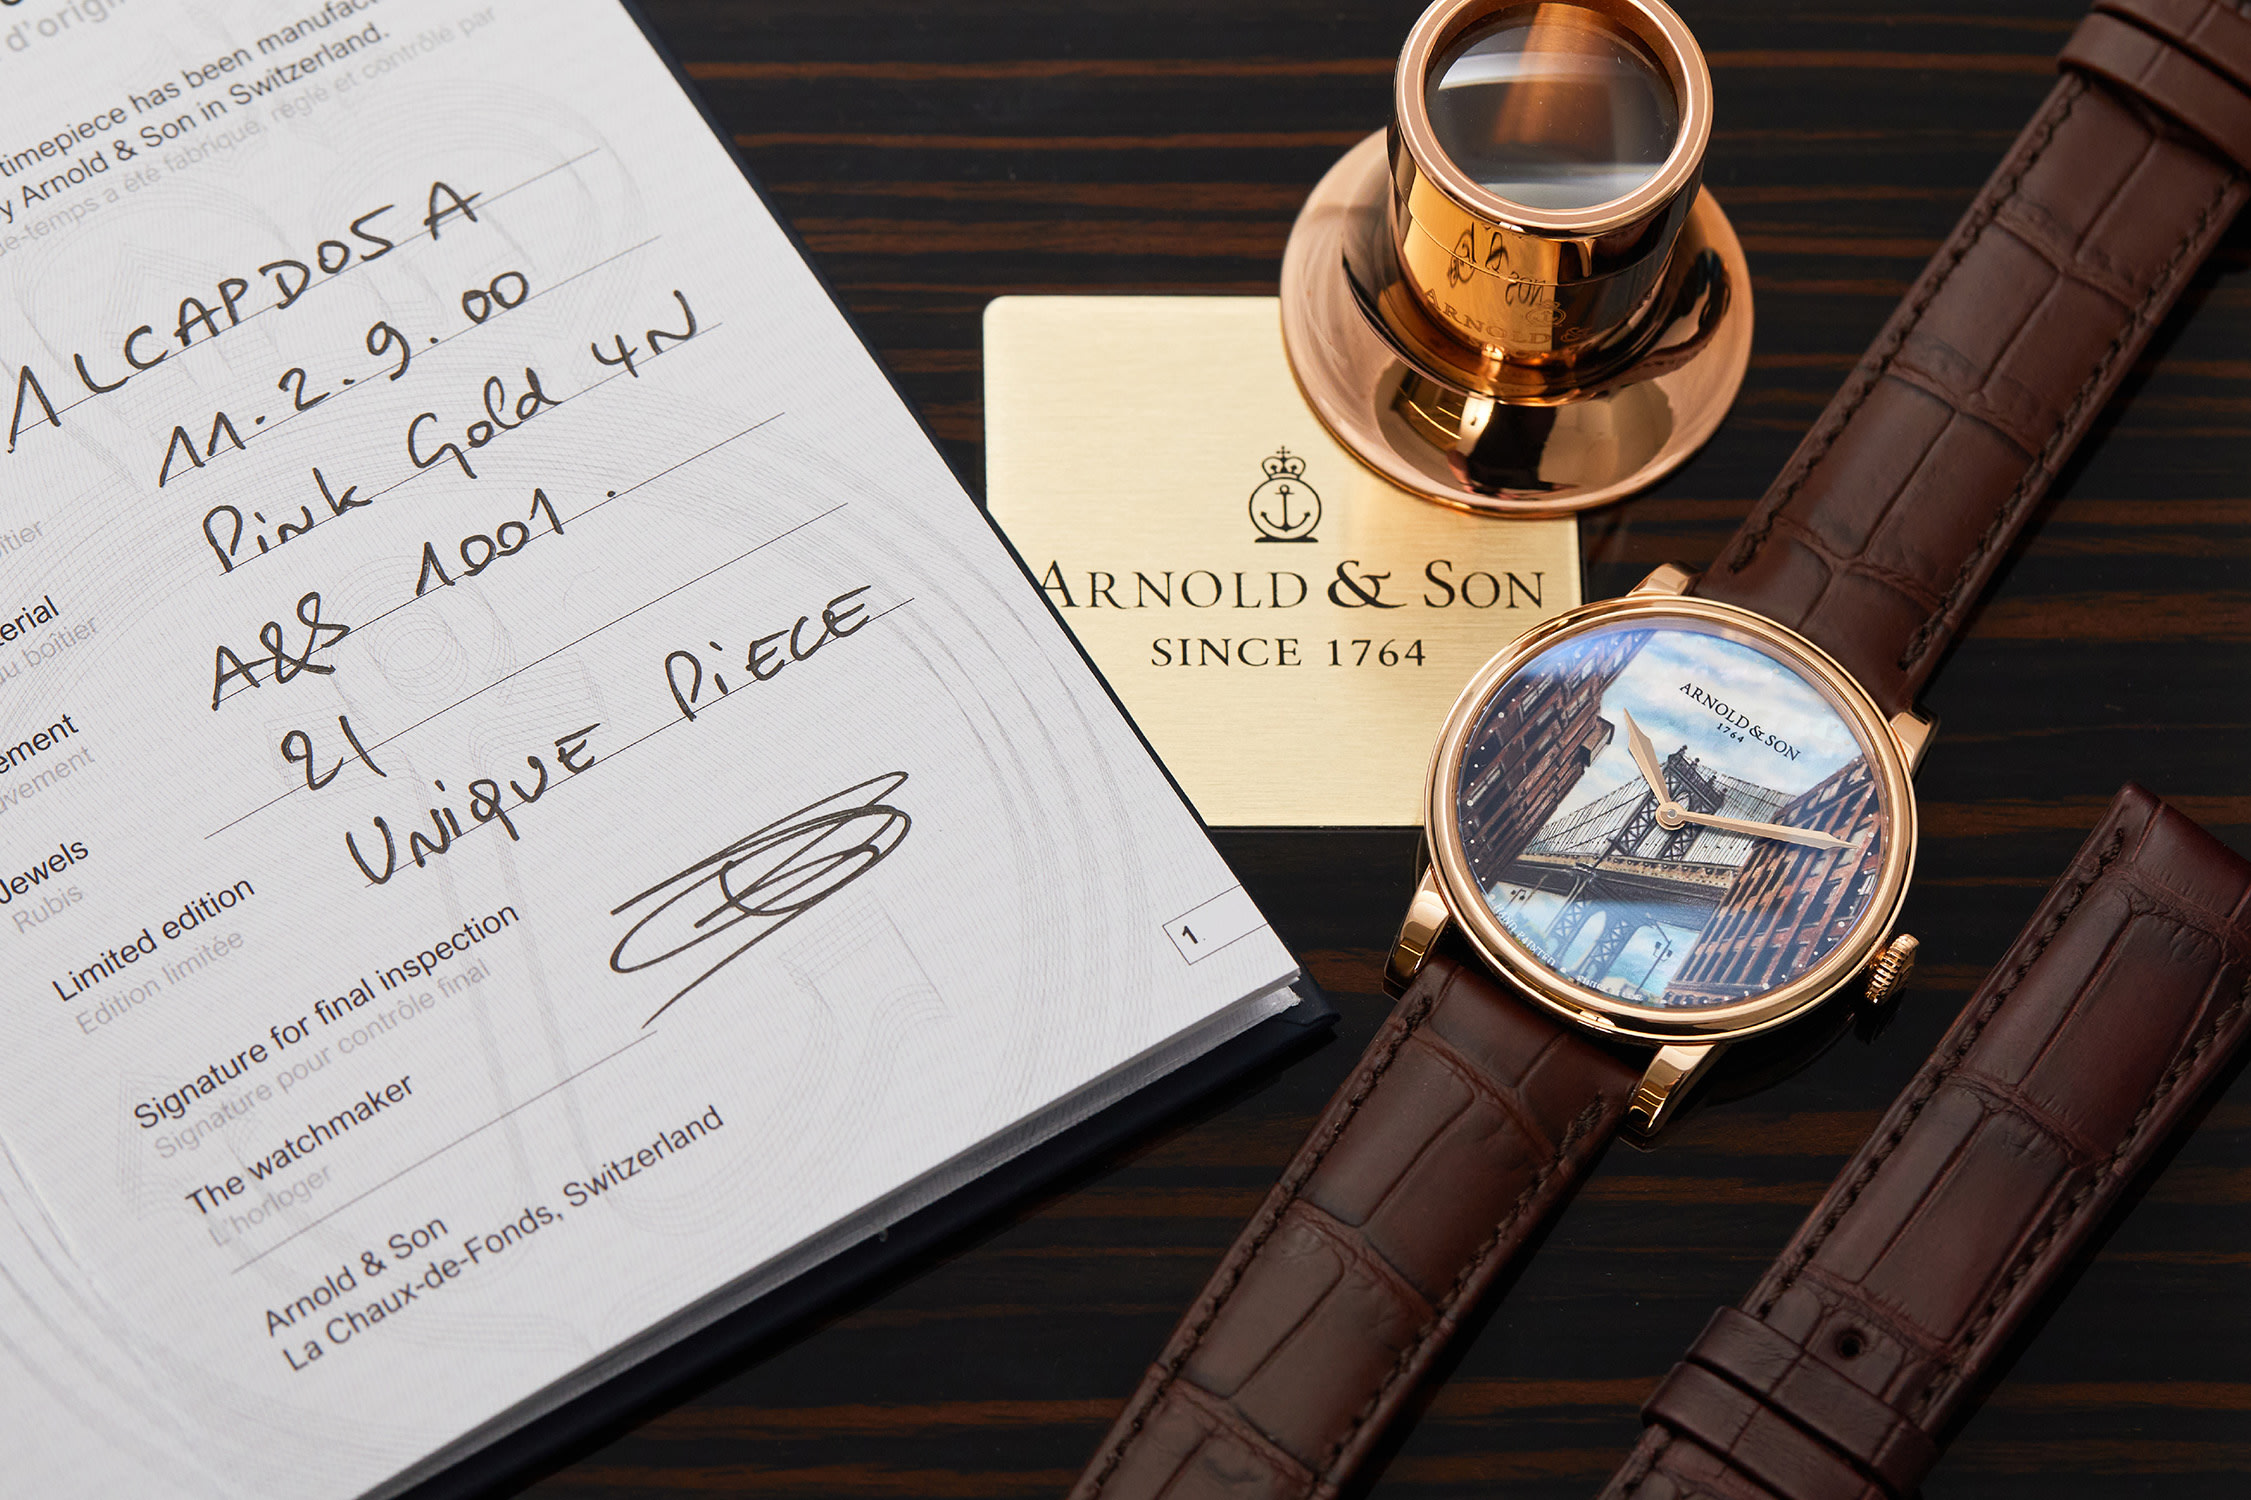 d'origi
timepiece has been manufac
y Arnold & Son in Switzerland.
de-temps a été fabriqué, réglé et contrôlé par
ALCAPD05A
11.2.9.00
Pink Gold 4N
A&S 1001.
21
UNIQUE PIECE
oîtier
terial
du boîtier
ement
uvement
Jewels
Rubis
Limited edition
Edition limitée
Signature for final inspection
Signature pour contrôle final
The watchmaker
L'horloger
Arnold & Son
La Chaux-de-Fonds, Switzerland
1.
ARNOLD &
ARNOLD & SON
SINCE 1764
ARNOLD & SON
1764
HAND PAINTED